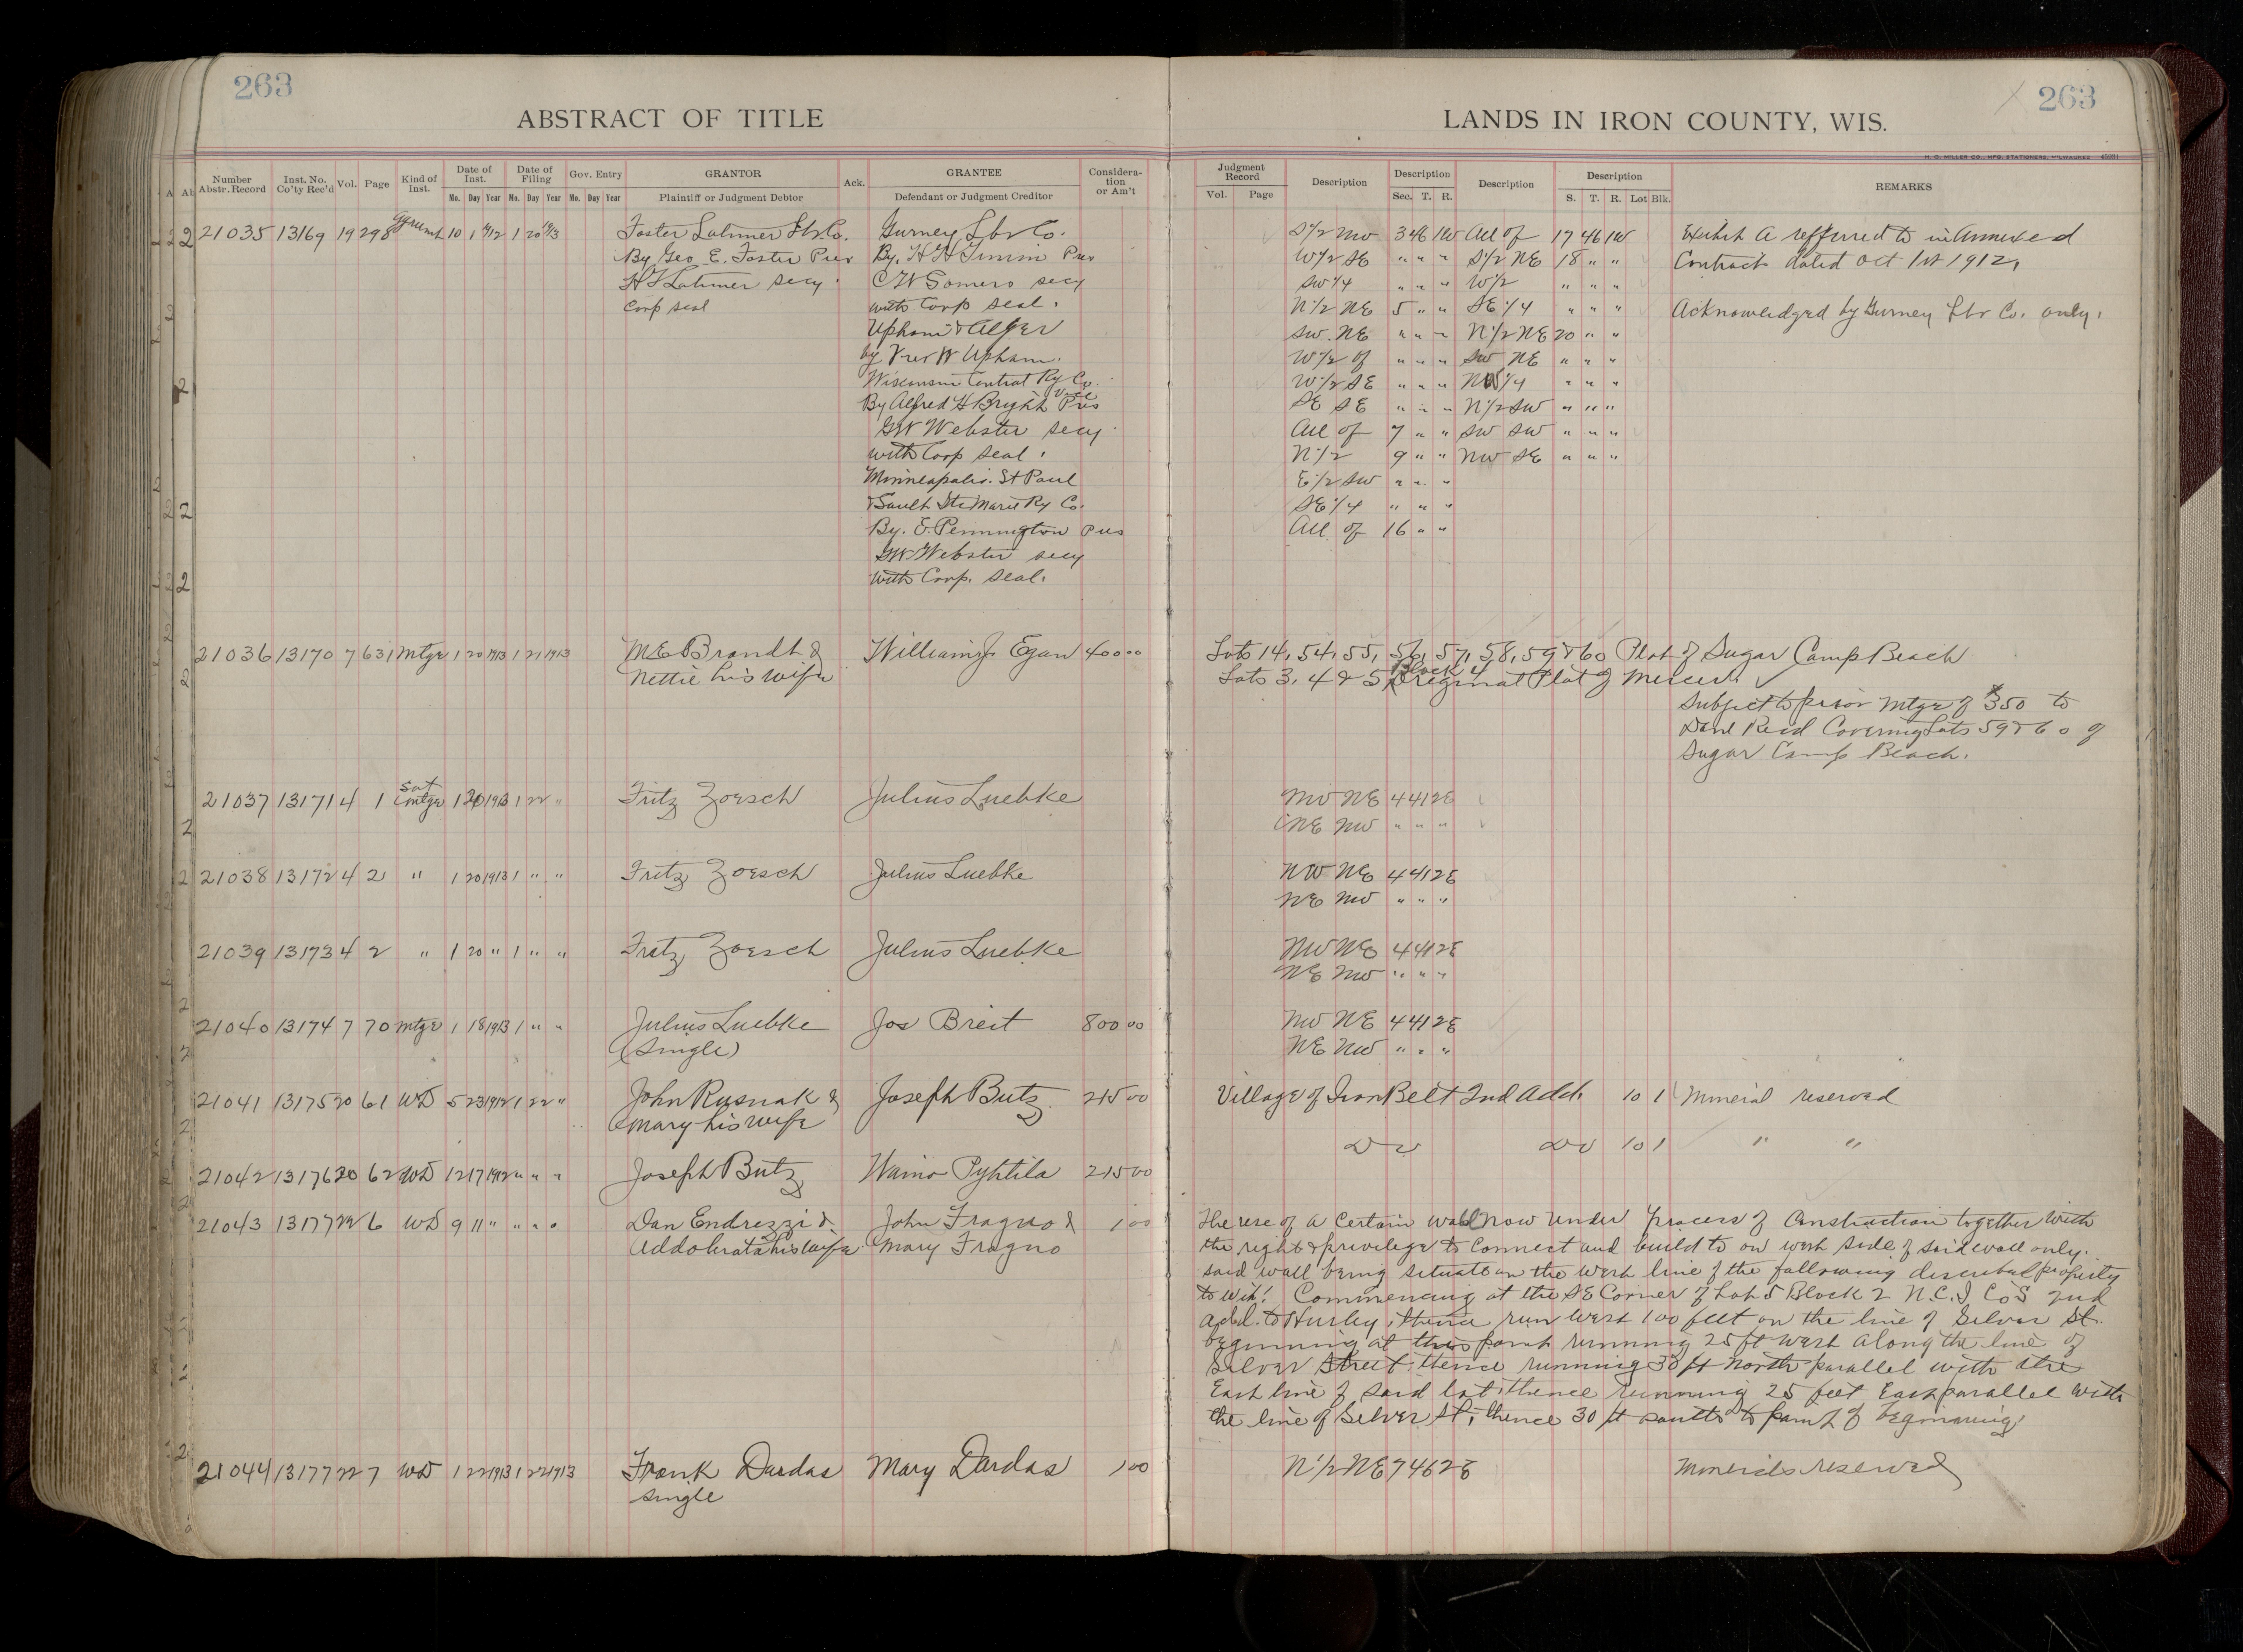 263
ABSTRACT OF TITLE
Number Abstr. Record Inst. No. Co'ty Rec'd Vol. Page Kind of Inst. Date of Inst. Date of Filing Gov. Entry GRANTOR Ack. GRANTEE Considera-tion or Am't
Mo. Day Year Mo. Day Year Mo. Day Year Plaintiff or Judgment Debtor Defendant or Judgment Creditor
21035 13169 19 298 10 1 1912 1 20 1913 Foster Latimer Lbr Co. Gurney Lbr Co.
By Geo E. Foster Pres By. H H Pres
H S Latimer secy C W Somers secy
Corp seal with Corp seal.
Upham & Alger
by W Upham.
Wisconsin Central Ry Co.
By Alfred H Bright Vice Pres
G W Webster secy
with Corp seal.
Minneapolis. St Paul
& Sault Ste Marie Ry Co.
By. E. Pennington Pres
G W Webster secy
with Corp. seal.
21036 13170 7 631 Mtge 1 20 1913 1 21 1913 M E Brandt & William J Egan 400 00
Nettie his wife
21037 13171 4 1 Sat Mtge 1 20 1913 1 22 " Fritz Zoesch Julius Luebke
21038 13172 4 2 " 1 20 1913 1 " " Fritz Zoesch Julius Luebke
21039 13173 4 2 " 1 20 " 1 " " Fritz Zoesch Julius Luebke
21040 13174 7 70 Mtge 1 18 1913 1 " " Julius Luebke Jos Breit 800 00
(Single)
21041 13175 20 61 WD 5 23 1912 1 22 " John Rusnak & Joseph Butz 215 00
Mary his wife
21042 13176 20 62 WD 12 17 1912 " " " Joseph Butz Waino Pyhtila 215 00
21043 13177 22 6 WD 9 11 " " " " Dan Endrezzi & John Fragno & 1 00
Addolorata his wife Mary Fragno
21044 13177 22 7 WD 1 22 1913 1 22 1913 Frank Dardas Mary Dardas 1 00
single
263
LANDS IN IRON COUNTY, WIS.
H. C. MILLER CO., MFG. STATIONERS, MILWAUKEE
Judgment Record Description Description Description Description REMARKS
Vol. Page Sec. T. R. S. T. R. Lot Blk.
S 1/2 NW 3 46 1W All of 17 46 1W Exhibit A refferred to in annexed
W 1/2 SE " " " S 1/2 NE 18 " " Contract dated Oct 1st 1912,
SW 1/4 " " " W 1/2 " " "
N 1/2 NE 5 " " SE 1/4 " " " Acknowledged by Gurney Lbr Co. only.
SW. NE " " " N 1/2 NE 20 " "
W 1/2 of " " " SW NE " " "
W 1/2 SE " " " NW 1/4 " " "
SE SE " " " N 1/2 SW " " "
All of 7 " " SW SW " " "
N 1/2 9 " " NW SE " " "
E 1/2 SW " " "
SE 1/4 " " "
All of 16 " "
Lots 14, 54, 55, 56, 57, 58, 59 & 60 Plat of Sugar Camp Beach
Lots 3, 4 & 5 Block 4 Original Plat of Mercer
Subject to prior Mtge of $350 to
Reid Covering Lots 59 & 60 of
Sugar Camp Beach.
NW NE 4 41 2E
NE NW " " "
NW NE 4 41 2E
NE NW " " "
NW NE 4 41 2E
NE NW " " "
NW NE 4 41 2E
NE NW " " "
Village of Iron Belt 2nd Add. 10 1 Mineral reserved
Do Do 10 1 " "
The use of a certain wall now under process of Construction together with
the right & privilege to Connect and build to on west side of said wall only.
said wall being situate on the West line of the following described property
to wit: Commencing at the SE Corner of Lot 5 Block 2 N.C.I Co's 2nd
add. to Hurley, thence run west 100 feet on the line of Silver St.
beginning at this point running 25 ft west along the line of
Silver Street. thence running 30 ft north parallel with the
East line of said lot thence running 25 feet East parallel with
the line of Silver St; thence 30 ft south to point of beginning.
N 1/2 NE 7 46 2E Minerals reserved